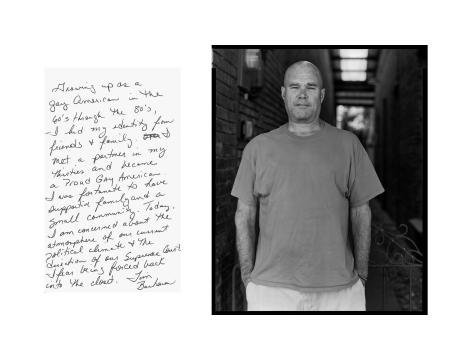 Growing up as a
gay American in the
60's through the 80's,
I hid my identity from
friends & family. I
met a partner in my
thirties and became
a Proud Gay American
I was fortunate to have
supportive family and a
small community. Today,
I am concerned about the
atmosphere of our current
political climate & the
direction of our Supreme Court.
I fear being forced back
into the closet. Tim